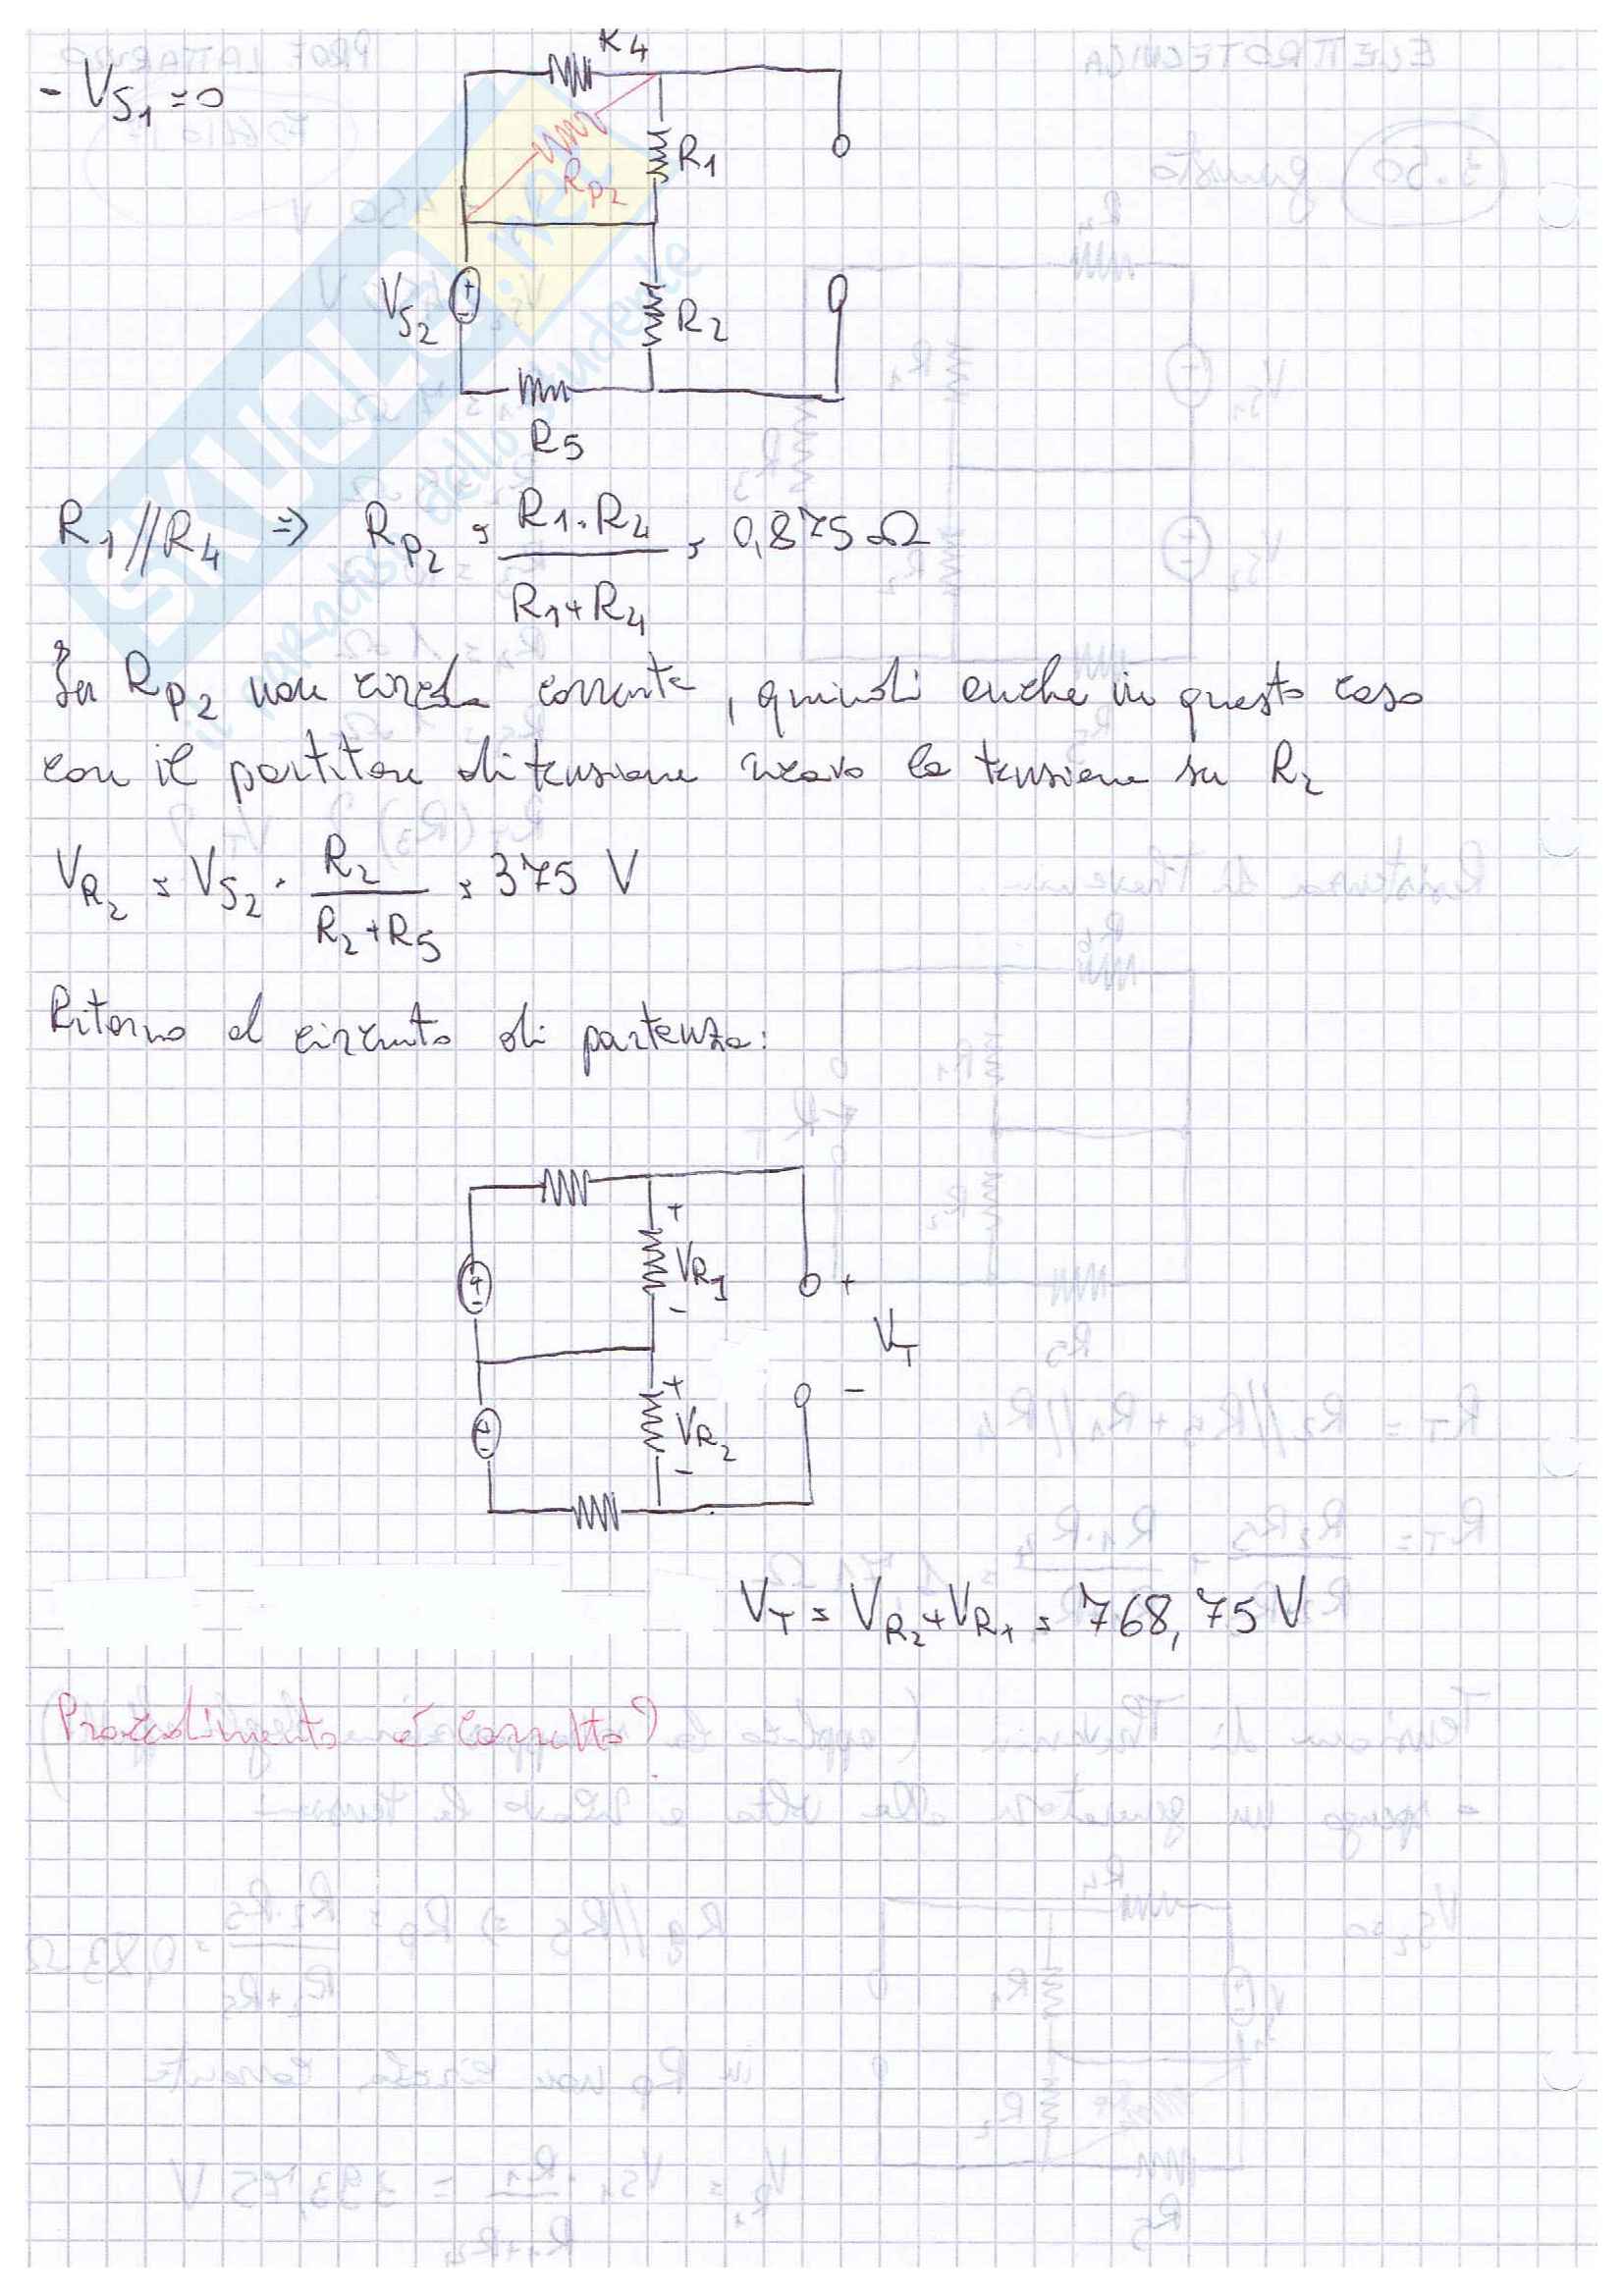 - VS1 = 0
R4
R1
RP2
VS2
R2
R5
R1 // R4 => RP2 = R1·R4 / R1+R4 = 0,875 Ω
Su RP2 non circola corrente, quindi anche in questo caso
con il partitore di tensione ricavo la tensione su R2
VR2 = VS2 · R2 / R2+R5 = 375 V
Ritorno al circuito di partenza:
+
VR1
-
+
VT
+
VR2
-
-
VT = VR2 + VR1 = 768,75 V
Procedimento è corretto?
SKUOLA.net
il paradiso dello studente